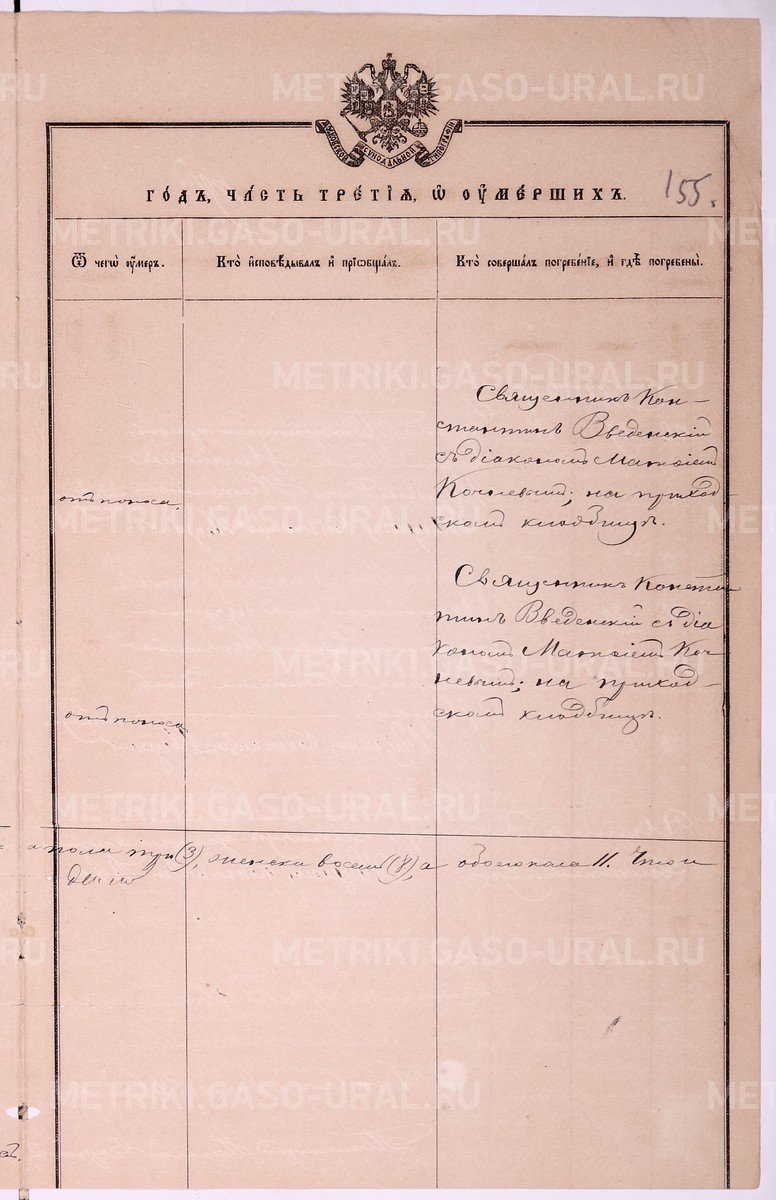 МОСКОВСКОЙ СѴНОДАЛЬНОЙ ТИПОГРАФІИ
155.
ГО́ДЪ, ЧА́СТЬ ТРЕ́ТІѦ, Ѽ ОУ҆МЕ́РШИХЪ.
Ѿ чегѡ̀ оу҆́мер.
Кто̀ и҆сповѣ́дывалъ и҆ прїѡбща́лъ.
Кто̀ соверша́лъ погребе́нїе, и҆ гдѣ̀ погребены̀.
отъ поноса.
Священникъ Кон-
стантинъ Введенскій
съ діакономъ Матѳіемъ
Кочневымъ; на приход-
скомъ кладбищѣ.
отъ поноса
Священникъ Констан
тинъ Введенскій съ діа
кономъ Матѳіемъ Коч
невымъ; на приход-
скомъ кладбищѣ.
а пола три (3), женска восемь (8), а обоего пола 11. Что и
METRIKI.GASO-URAL.RU